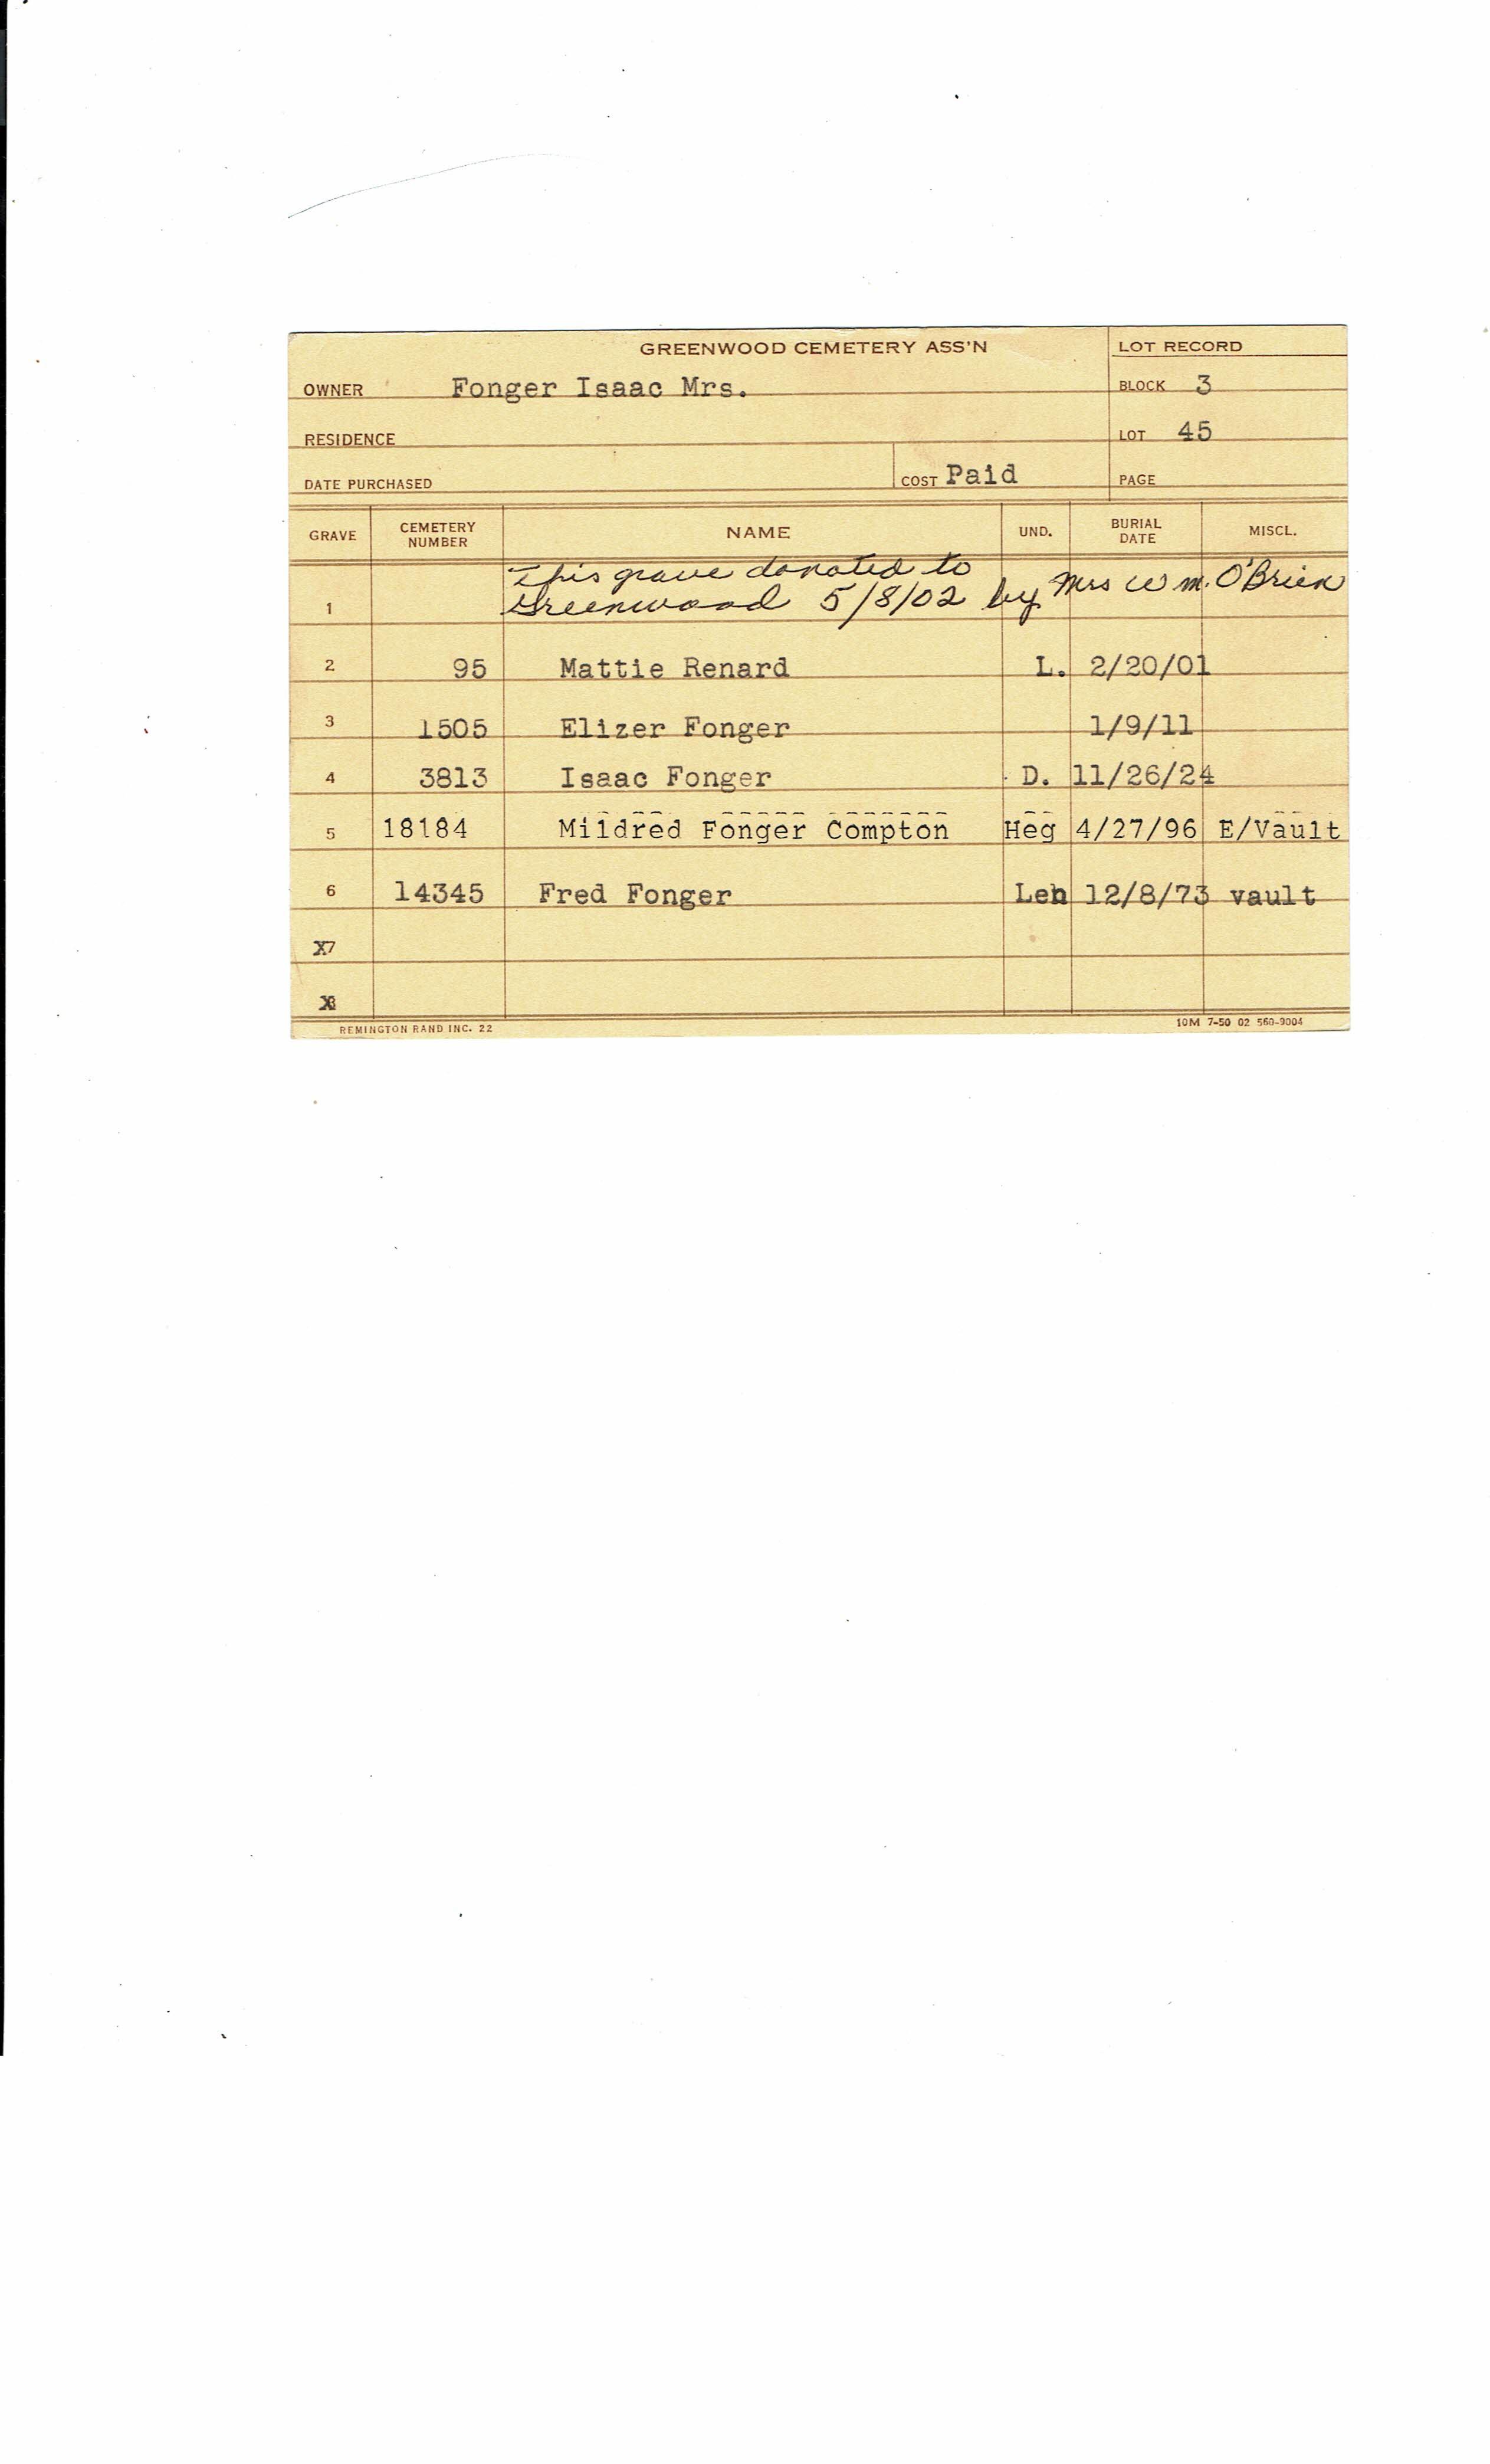 GREENWOOD CEMETERY ASS'N LOT RECORD
OWNER Fonger Isaac Mrs. BLOCK 3
RESIDENCE LOT 45
DATE PURCHASED COST Paid PAGE
GRAVE CEMETERY NUMBER NAME UND. BURIAL DATE MISCL.
This grave donated to
1 Greenwood 5/8/02 by Mrs Wm. O'Brien
2 95 Mattie Renard L. 2/20/01
3 1505 Elizer Fonger 1/9/11
4 3813 Isaac Fonger D. 11/26/24
5 18184 Mildred Fonger Compton Heg 4/27/96 E/Vault
6 14345 Fred Fonger Len 12/8/73 vault
X7
X8
REMINGTON RAND INC. 22 10M 7-50 02 560-9004